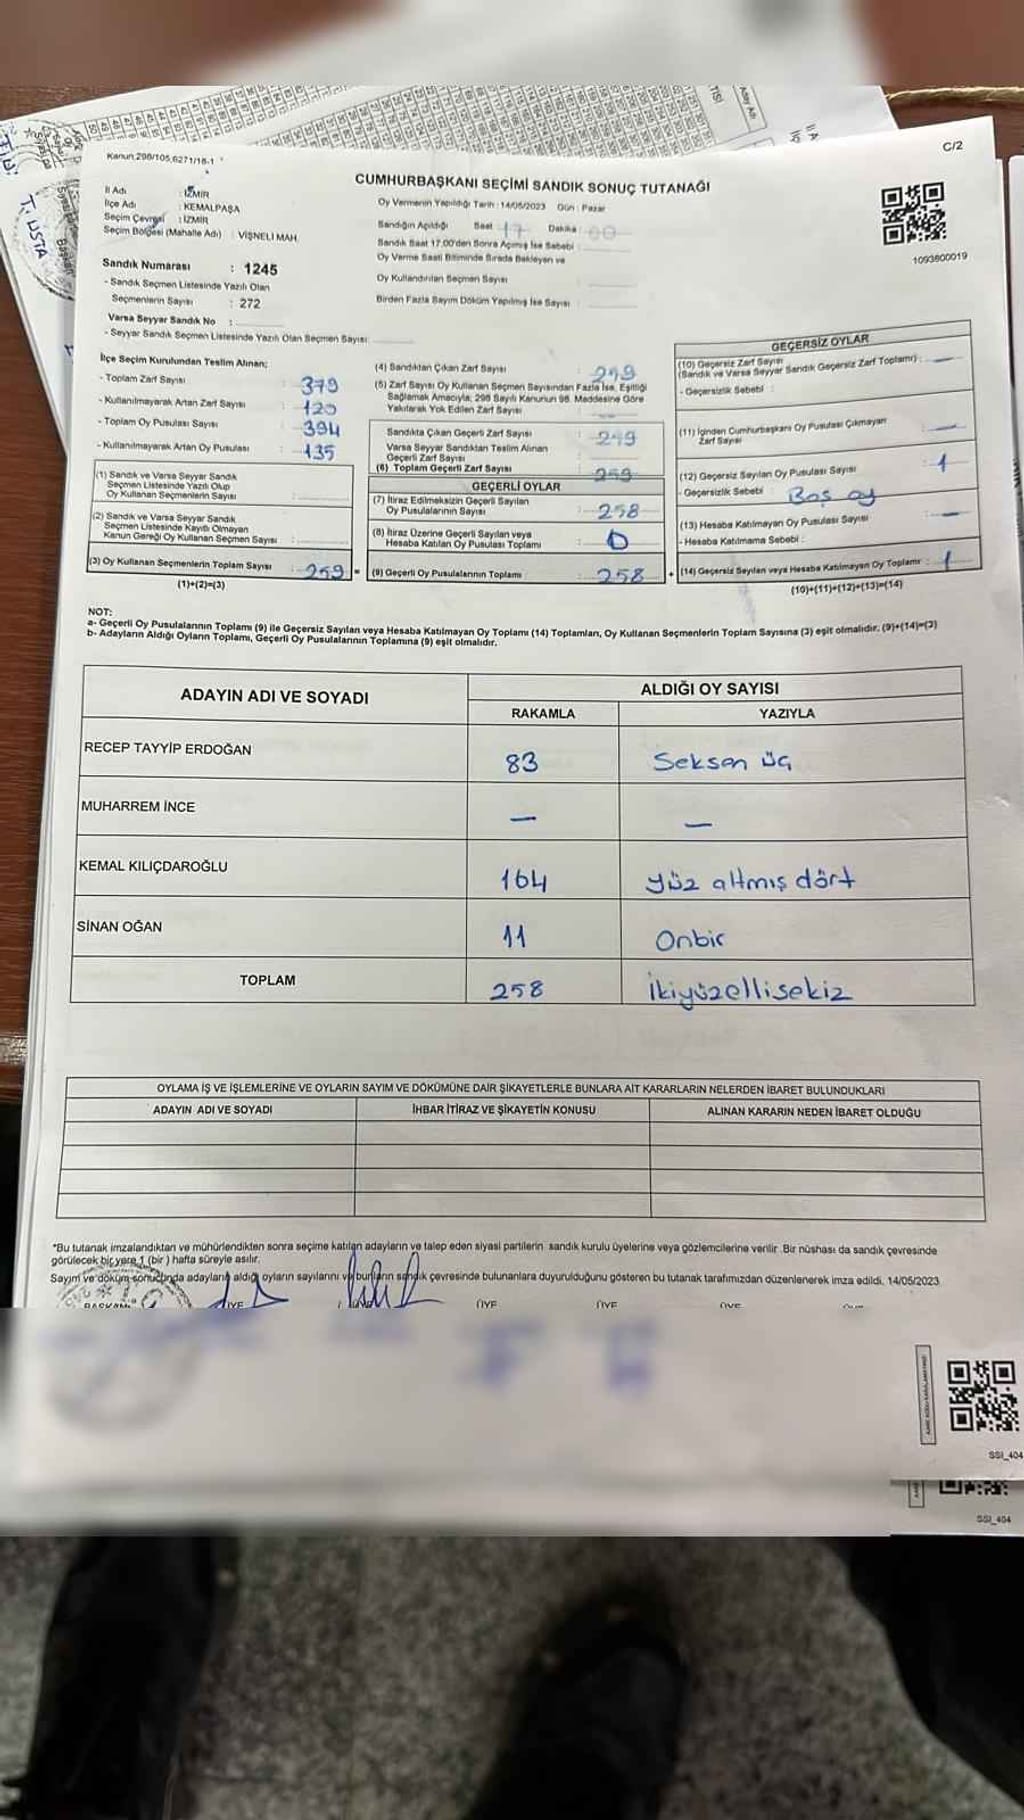 C/2
Kanun:298/105,6271/18-1
CUMHURBAŞKANI SEÇİMİ SANDIK SONUÇ TUTANAĞI
İl Adı : İZMİR
İlçe Adı : KEMALPAŞA
Seçim Çevresi : İZMİR
Seçim Bölgesi (Mahalle Adı) : VİŞNELİ MAH.
Sandık Numarası : 1245
- Sandık Seçmen Listesinde Yazılı Olan
Seçmenlerin Sayısı : 272
Varsa Seyyar Sandık No :
- Seyyar Sandık Seçmen Listesinde Yazılı Olan Seçmen Sayısı:
Oy Vermenin Yapıldığı Tarih : 14/05/2023 Gün : Pazar
Sandığın Açıldığı Saat 17 Dakika : 00
Sandık Saat 17.00'den Sonra Açılmış İse Sebebi :
Oy Verme Saati Bitiminde Sırada Bekleyen ve
Oy Kullandırılan Seçmen Sayısı
Birden Fazla Sayım Döküm Yapılmış İse Sayısı :
1093600019
İlçe Seçim Kurulundan Teslim Alınan;
- Toplam Zarf Sayısı : 379
- Kullanılmayarak Artan Zarf Sayısı : 120
- Toplam Oy Pusulası Sayısı : 394
- Kullanılmayarak Artan Oy Pusulası : 135
(1) Sandık ve Varsa Seyyar Sandık
Seçmen Listesinde Yazılı Olup
Oy Kullanan Seçmenlerin Sayısı :
(2) Sandık ve Varsa Seyyar Sandık
Seçmen Listesinde Kayıtlı Olmayan
Kanun Gereği Oy Kullanan Seçmen Sayısı :
(3) Oy Kullanan Seçmenlerin Toplam Sayısı : 259
(1)+(2)=(3)
(4) Sandıktan Çıkan Zarf Sayısı : 259
(5) Zarf Sayısı Oy Kullanan Seçmen Sayısından Fazla İse, Eşitliği
Sağlamak Amacıyla; 298 Sayılı Kanunun 98. Maddesine Göre
Yakılarak Yok Edilen Zarf Sayısı :
Sandıkta Çıkan Geçerli Zarf Sayısı : 259
Varsa Seyyar Sandıktan Teslim Alınan
Geçerli Zarf Sayısı :
(6) Toplam Geçerli Zarf Sayısı : 259
GEÇERLİ OYLAR
(7) İtiraz Edilmeksizin Geçerli Sayılan
Oy Pusulalarının Sayısı : 258
(8) İtiraz Üzerine Geçerli Sayılan veya
Hesaba Katılan Oy Pusulası Toplamı : 0
(9) Geçerli Oy Pusulalarının Toplamı : 258
GEÇERSİZ OYLAR
(10) Geçersiz Zarf Sayısı
(Sandık ve Varsa Seyyar Sandık Geçersiz Zarf Toplamı) : —
- Geçersizlik Sebebi :
(11) İçinden Cumhurbaşkanı Oy Pusulası Çıkmayan
Zarf Sayısı : —
(12) Geçersiz Sayılan Oy Pusulası Sayısı : 1
- Geçersizlik Sebebi : Boş oy
(13) Hesaba Katılmayan Oy Pusulası Sayısı : —
- Hesaba Katılmama Sebebi :
(14) Geçersiz Sayılan veya Hesaba Katılmayan Oy Toplamı : 1
(10)+(11)+(12)+(13)=(14)
NOT:
a- Geçerli Oy Pusulalarının Toplamı (9) ile Geçersiz Sayılan veya Hesaba Katılmayan Oy Toplamı (14) Toplamları, Oy Kullanan Seçmenlerin Toplam Sayısına (3) eşit olmalıdır. (9)+(14)=(3)
b- Adayların Aldığı Oyların Toplamı, Geçerli Oy Pusulalarının Toplamına (9) eşit olmalıdır.
ADAYIN ADI VE SOYADI ALDIĞI OY SAYISI
RAKAMLA YAZIYLA
RECEP TAYYİP ERDOĞAN 83 Seksen üç
MUHARREM İNCE — —
KEMAL KILIÇDAROĞLU 164 yüz altmış dört
SİNAN OĞAN 11 Onbir
TOPLAM 258 İkiyüzellisekiz
OYLAMA İŞ VE İŞLEMLERİNE VE OYLARIN SAYIM VE DÖKÜMÜNE DAİR ŞİKAYETLERLE BUNLARA AİT KARARLARIN NELERDEN İBARET BULUNDUKLARI
ADAYIN ADI VE SOYADI İHBAR İTİRAZ VE ŞİKAYETİN KONUSU ALINAN KARARIN NEDEN İBARET OLDUĞU
*Bu tutanak imzalandıktan ve mühürlendikten sonra seçime katılan adayların ve talep eden siyasi partilerin sandık kurulu üyelerine veya gözlemcilerine verilir. Bir nüshası da sandık çevresinde
görülecek bir yere 1 (bir) hafta süreyle asılır.
Sayım ve döküm sonucunda adayların aldığı oyların sayılarını ve bunların sandık çevresinde bulunanlara duyurulduğunu gösteren bu tutanak tarafımızdan düzenlenerek imza edildi. 14/05/2023
BAŞKAN ÜYE ÜYE ÜYE ÜYE ÜYE
SSI_404
SSI_404